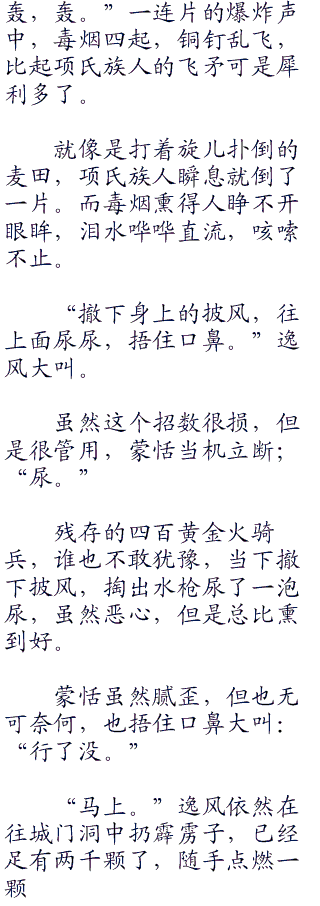 轰，轰。”一连片的爆炸声
中，毒烟四起，铜钉乱飞，
比起项氏族人的飞矛可是犀
利多了。
就像是打着旋儿扑倒的
麦田，项氏族人瞬息就倒了
一片。而毒烟熏得人睁不开
眼眸，泪水哗哗直流，咳嗦
不止。
“撤下身上的披风，往
上面尿尿，捂住口鼻。”逸
风大叫。
虽然这个招数很损，但
是很管用，蒙恬当机立断；
“尿。”
残存的四百黄金火骑
兵，谁也不敢犹豫，当下撤
下披风，掏出水枪尿了一泡
尿，虽然恶心，但是总比熏
到好。
蒙恬虽然腻歪，但也无
可奈何，也捂住口鼻大叫：
“行了没。”
“马上。”逸风依然在
往城门洞中扔霹雳子，已经
足有两千颗了，随手点燃一
颗